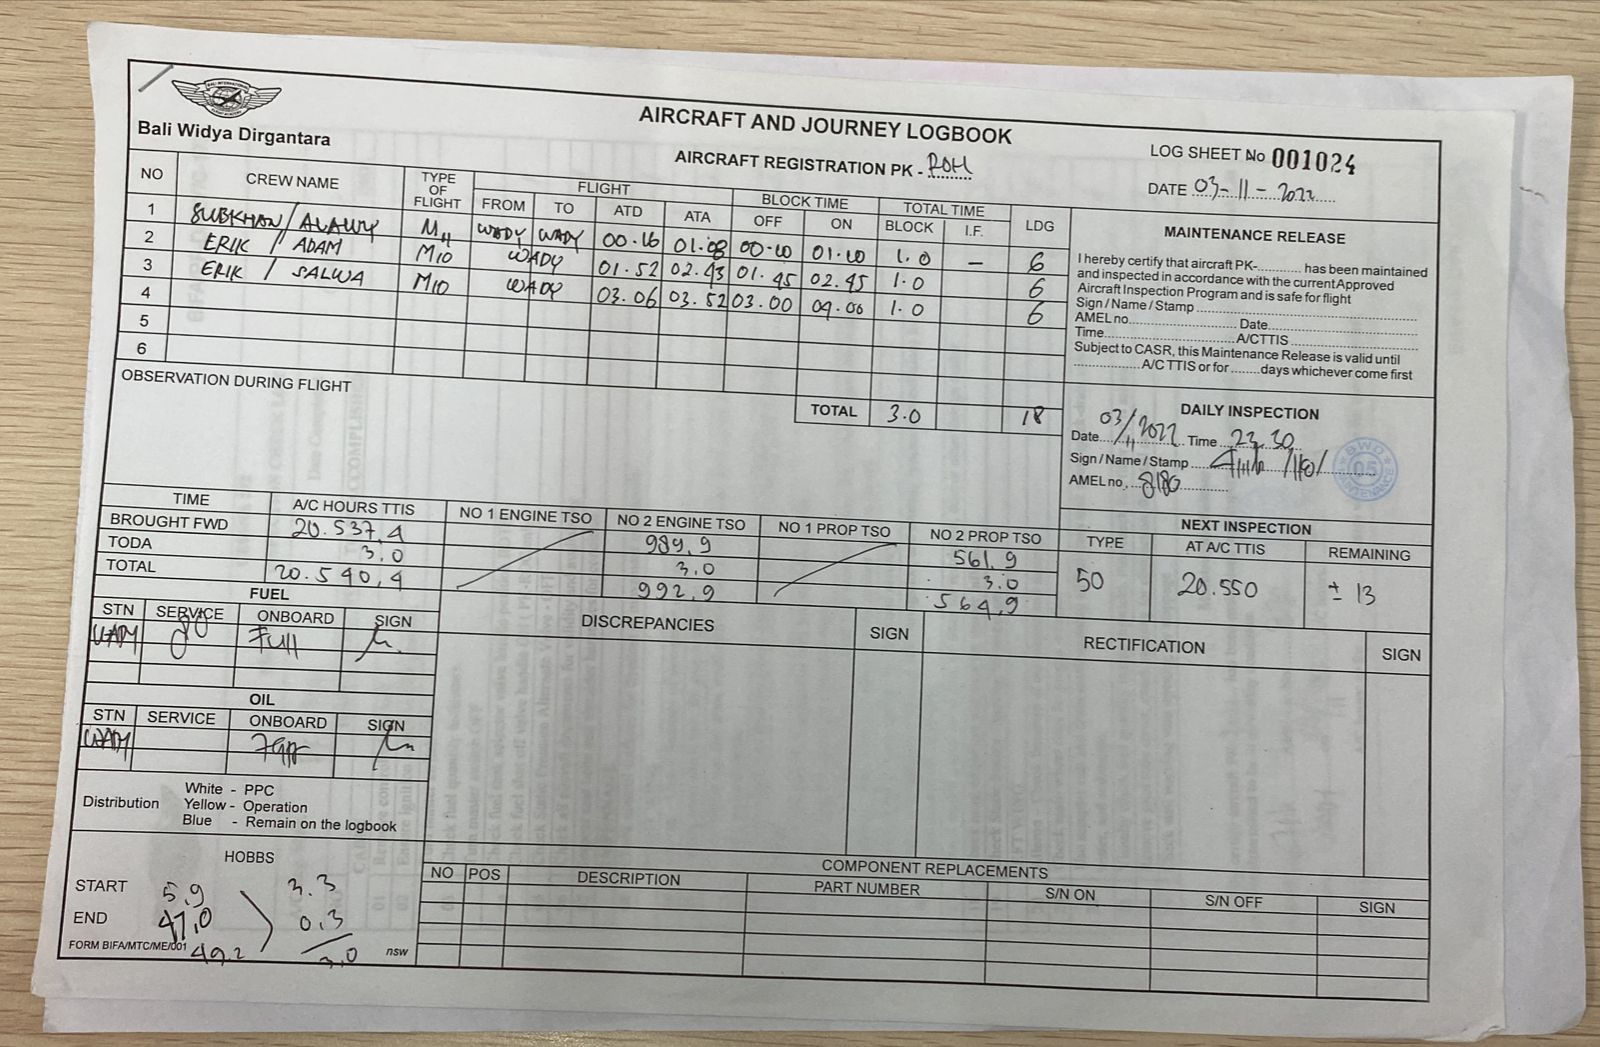 Bali Widya Dirgantara
AIRCRAFT AND JOURNEY LOGBOOK
AIRCRAFT REGISTRATION PK - ROH
LOG SHEET No 001024
DATE 03-11-2022
NO CREW NAME TYPE OF FLIGHT FLIGHT BLOCK TIME TOTAL TIME LDG
FROM TO ATD ATA OFF ON BLOCK I.F.
1 SUBKHAN / ALAUY M11 WADY WADY 00.16 01.08 00.10 01.10 1.0 – 6
2 ERIK / ADAM M10 WADY 01.52 02.43 01.45 02.45 1.0 6
3 ERIK / SALWA M10 WADY 03.06 03.52 03.00 04.00 1.0 6
4
5
6
TOTAL 3.0 18
OBSERVATION DURING FLIGHT
MAINTENANCE RELEASE
I hereby certify that aircraft PK-............ has been maintained
and inspected in accordance with the current Approved
Aircraft Inspection Program and is safe for flight
Sign / Name / Stamp
AMEL no. Date
Time A/C TTIS
Subject to CASR, this Maintenance Release is valid until
A/C TTIS or for ........ days whichever come first
DAILY INSPECTION
Date 03/11/2022 Time 23.30
Sign / Name / Stamp
AMEL no. 8180
BWD 05 MAINTENANCE
TIME A/C HOURS TTIS NO 1 ENGINE TSO NO 2 ENGINE TSO NO 1 PROP TSO NO 2 PROP TSO
BROUGHT FWD 20.537,4 989,9 561,9
TODA 3.0 3.0 3.0
TOTAL 20.540,4 992,9 564,9
NEXT INSPECTION
TYPE AT A/C TTIS REMAINING
50 20.550 ± 13
FUEL
STN SERVICE ONBOARD SIGN
WADY Full
OIL
STN SERVICE ONBOARD SIGN
WADY
DISCREPANCIES SIGN RECTIFICATION SIGN
Distribution White - PPC
Yellow - Operation
Blue - Remain on the logbook
HOBBS
START 5,9 3.3
END 47,0 0,3
49.2 3,0
FORM BIFA/MTC/ME/001 nsw
COMPONENT REPLACEMENTS
NO POS DESCRIPTION PART NUMBER S/N ON S/N OFF SIGN